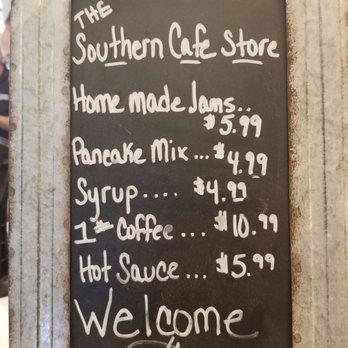 THE
Southern Cafe Store
Home made Jams..
$5.99
Pancake Mix ... $4.99
Syrup .... $4.99
1# Coffee ... $10.99
Hot Sauce ... $5.99
Welcome